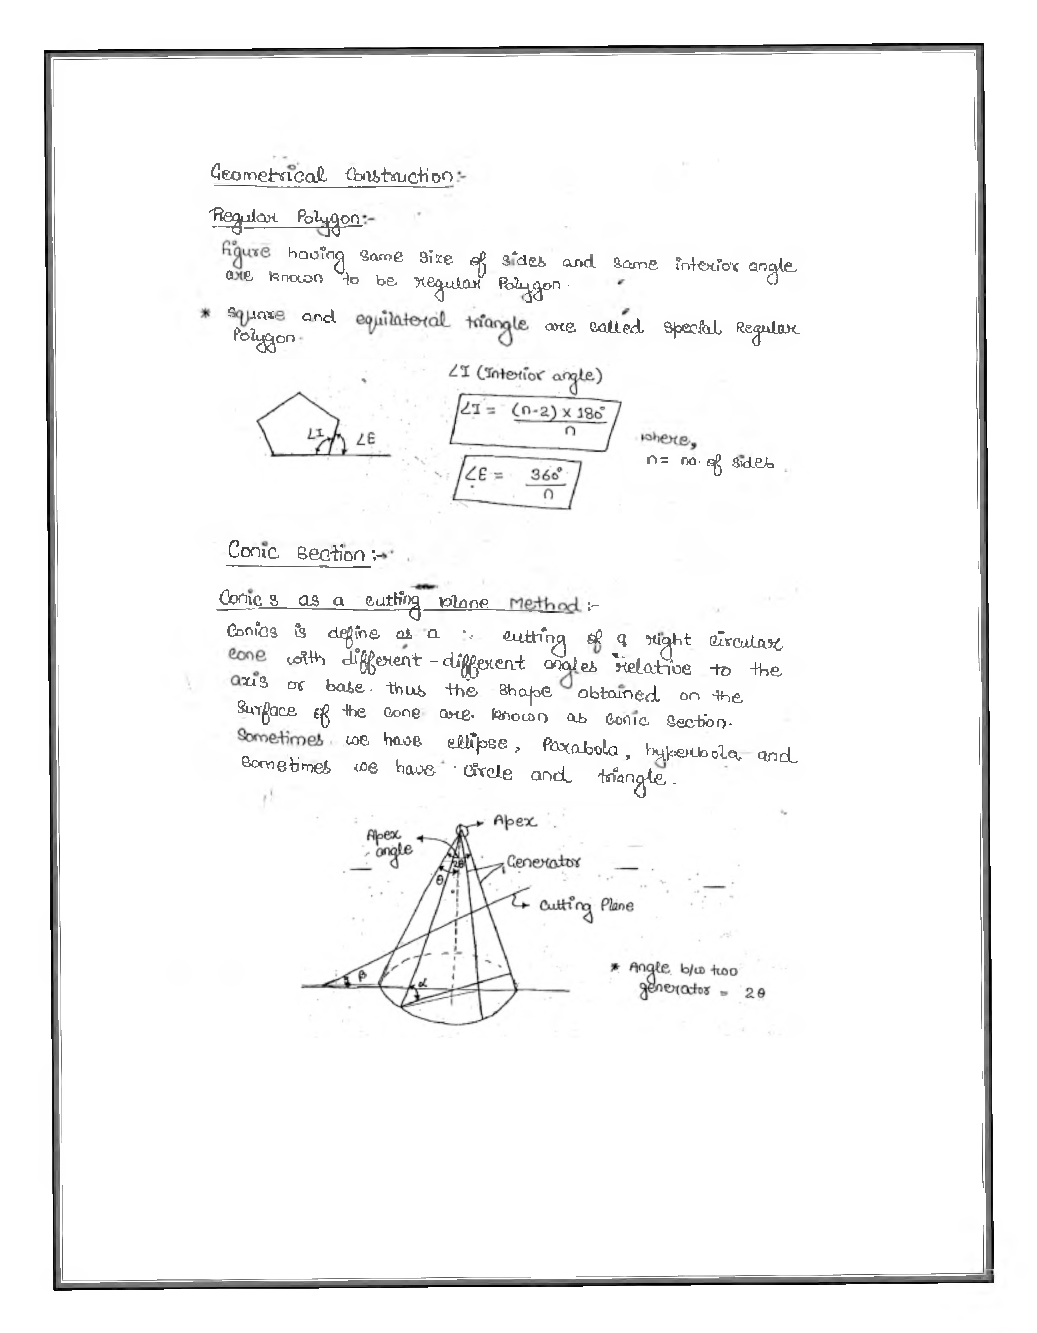 Geometrical Construction:-
Regular Polygon:-
figure having same size of sides and same interior angle
are known to be regular Polygon.
* Square and equilateral triangle are called special Regular
Polygon.
∠I (Interior angle)
∠I = (n-2) x 180° / n
∠I ∠E
where,
n = no. of sides
∠E = 360° / n
Conic Section :-
Conic s as a cutting plane Method :-
Conics is define as a cutting of a right circular
cone with different - different angles relative to the
axis or base. thus the shape obtained on the
surface of the cone are known as conic section.
Sometimes we have ellipse, Parabola, hyperbola and
sometimes we have circle and triangle.
Apex
Apex
angle
2θ
Generator
θ
Cutting Plane
β
α
* Angle b/w two
generator = 2θ